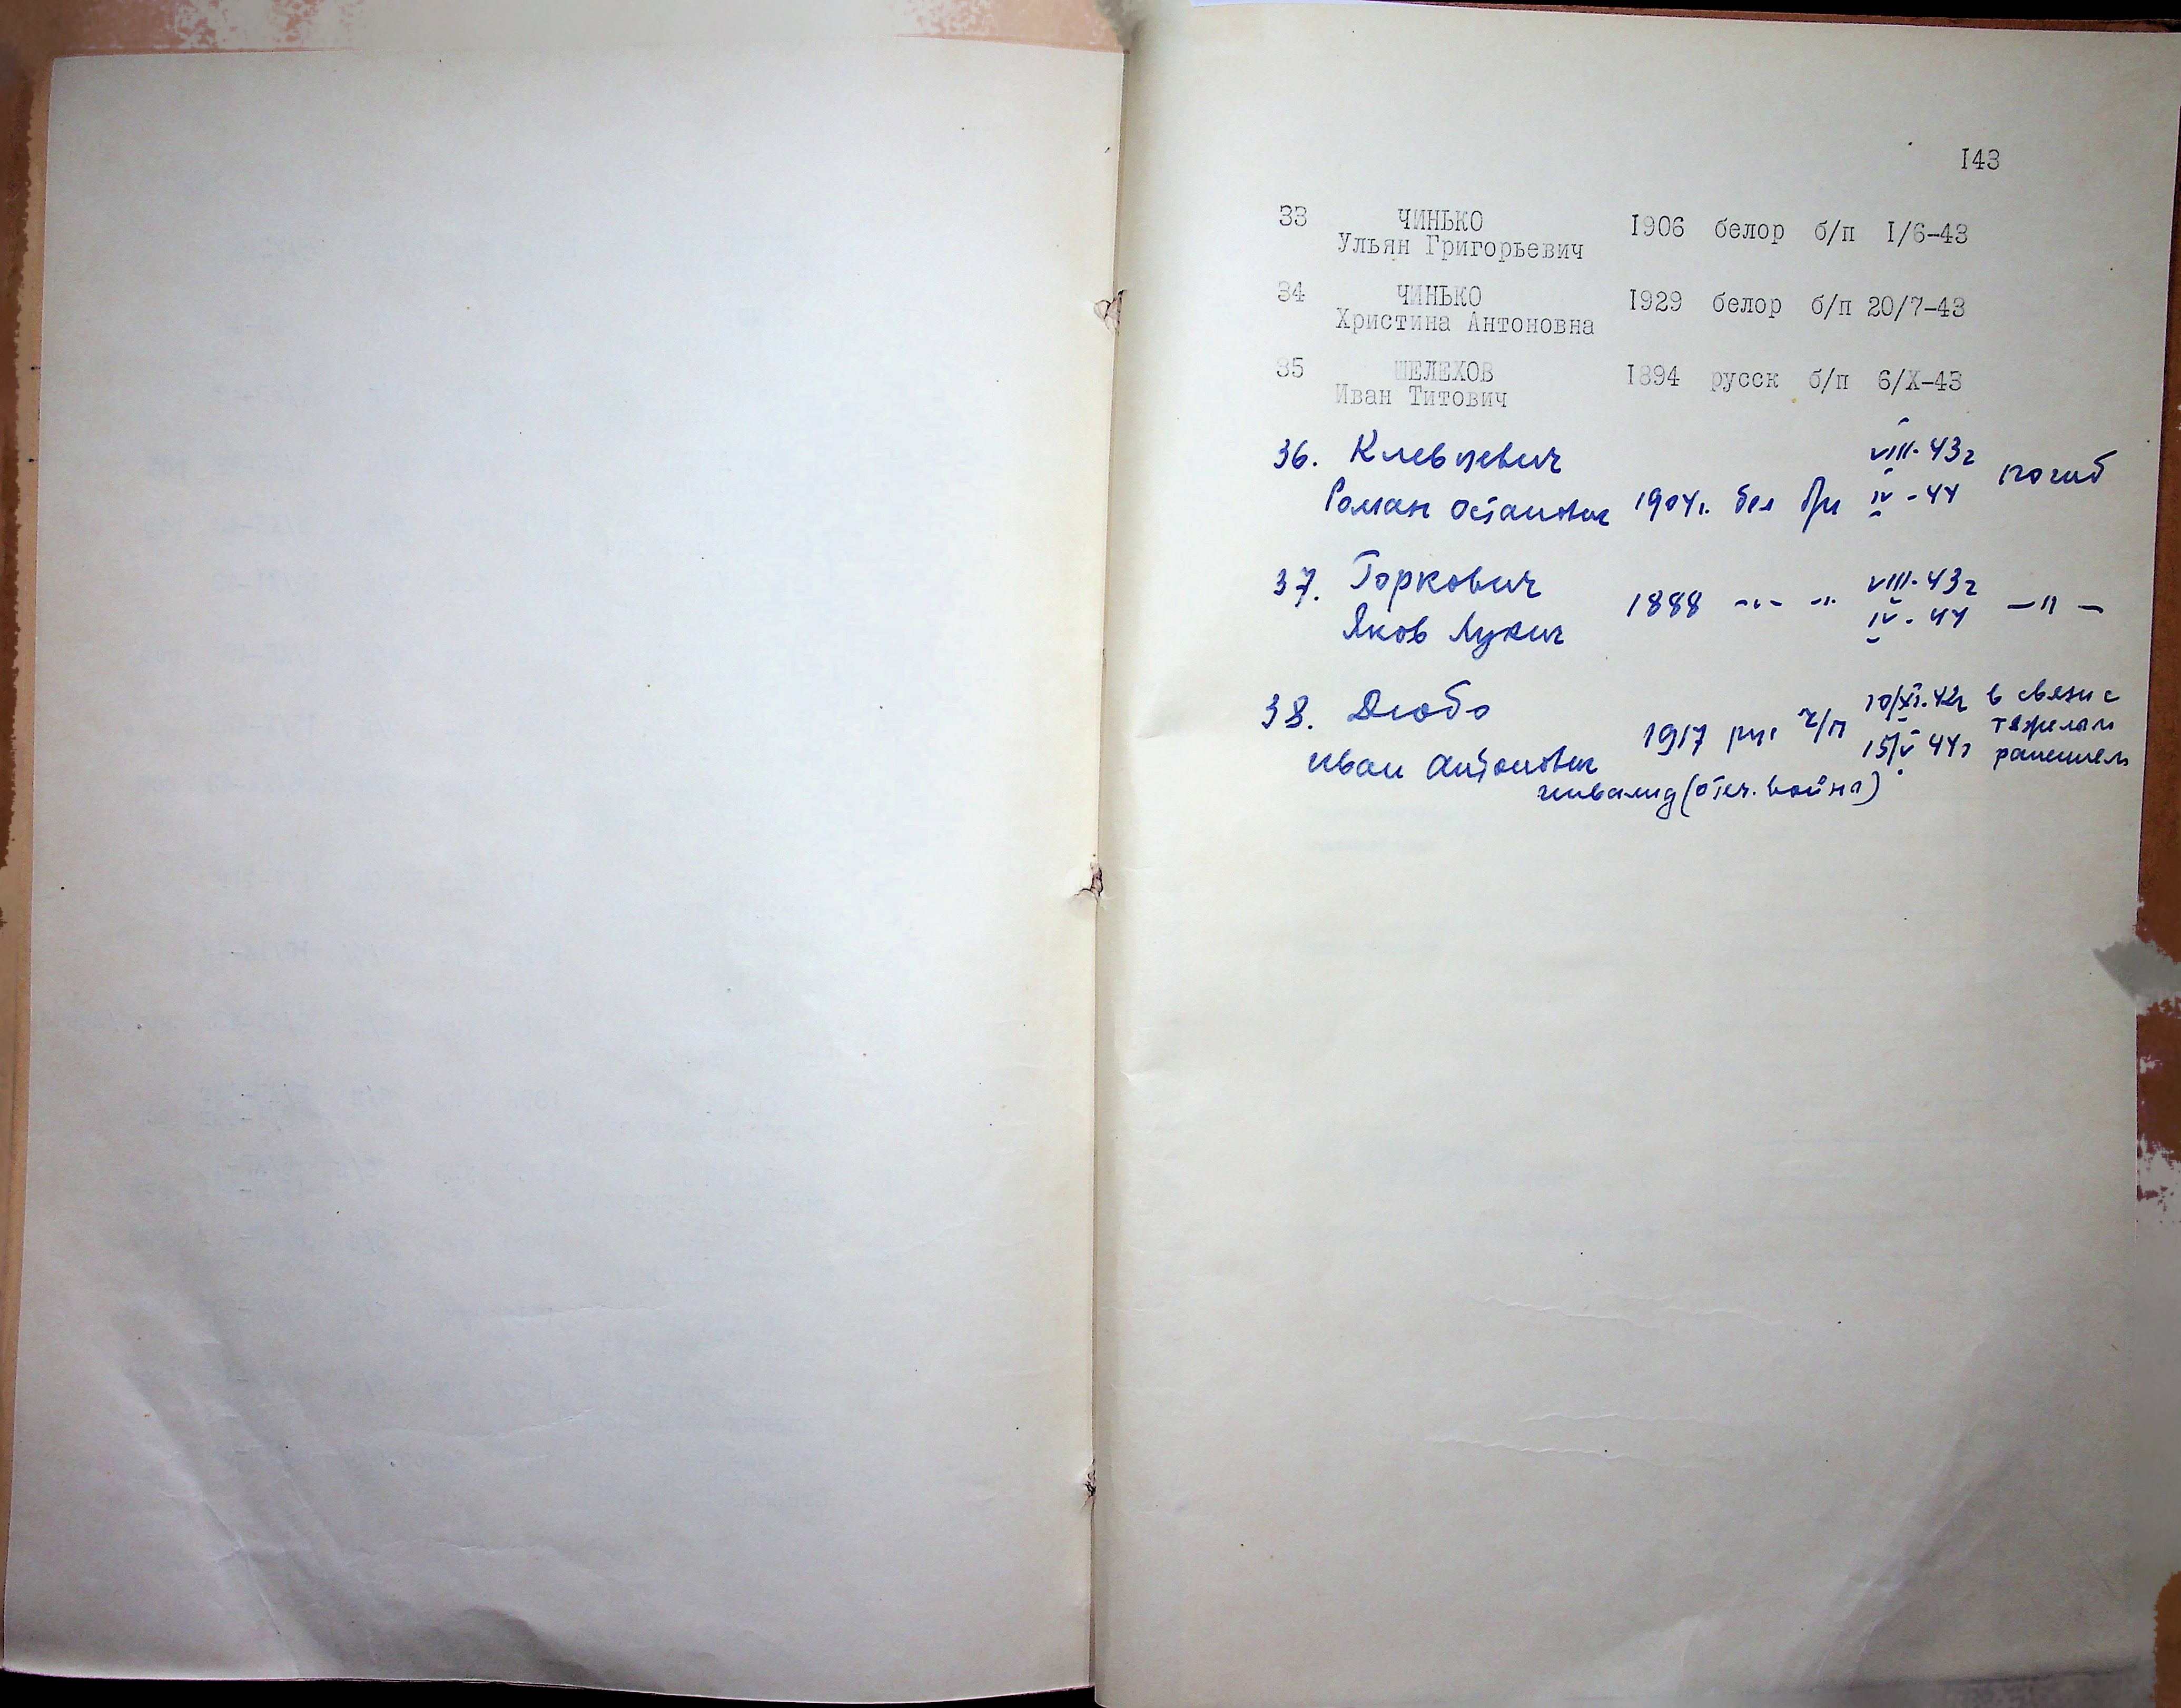 I43
33 ЧИНЬКО I906 белор б/п I/6-43
Ульян Григорьевич
34 ЧИНЬКО I929 белор б/п 20/7-43
Христина Антоновна
35 ШЕЛЕХОВ I894 русск б/п 6/X-43
Иван Титович
36. VIII-43г погиб
Роман Остапович 1904г. бел б/п IV-44
37. Горкович VIII-43г
Яков Лукич 1888 -"- -" IV-44 -"-
38. Дюбо 10/XI.42г в связи с
1917 рус ч/п тяжелым
Иван Антонович 15/V 44г ранением
инвалид (отеч. война)